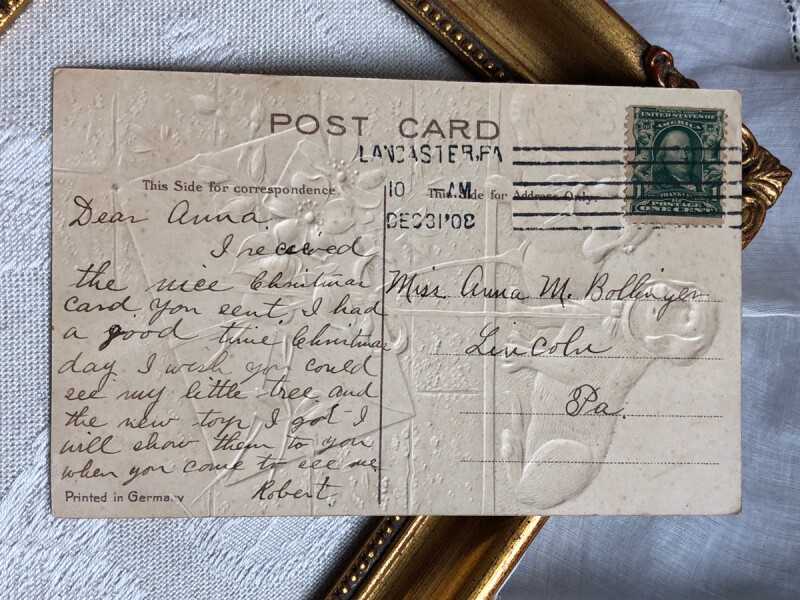 POST CARD
LANCASTER, PA
10 AM
DEC 31 '08
UNITED STATES OF
AMERICA
FRANKLIN
POSTAGE
ONE CENT
This Side for correspondence
This Side for Address Only.
Dear Anna
I received
the nice Christmas
card. You sent, I had
a good time Christmas
day. I wish you could
see my little tree and
the new toys I got I
will show them to you
when you come to see me.
Robert.
Printed in Germany
Miss. Anna M. Bollinger
Lincoln
Pa.